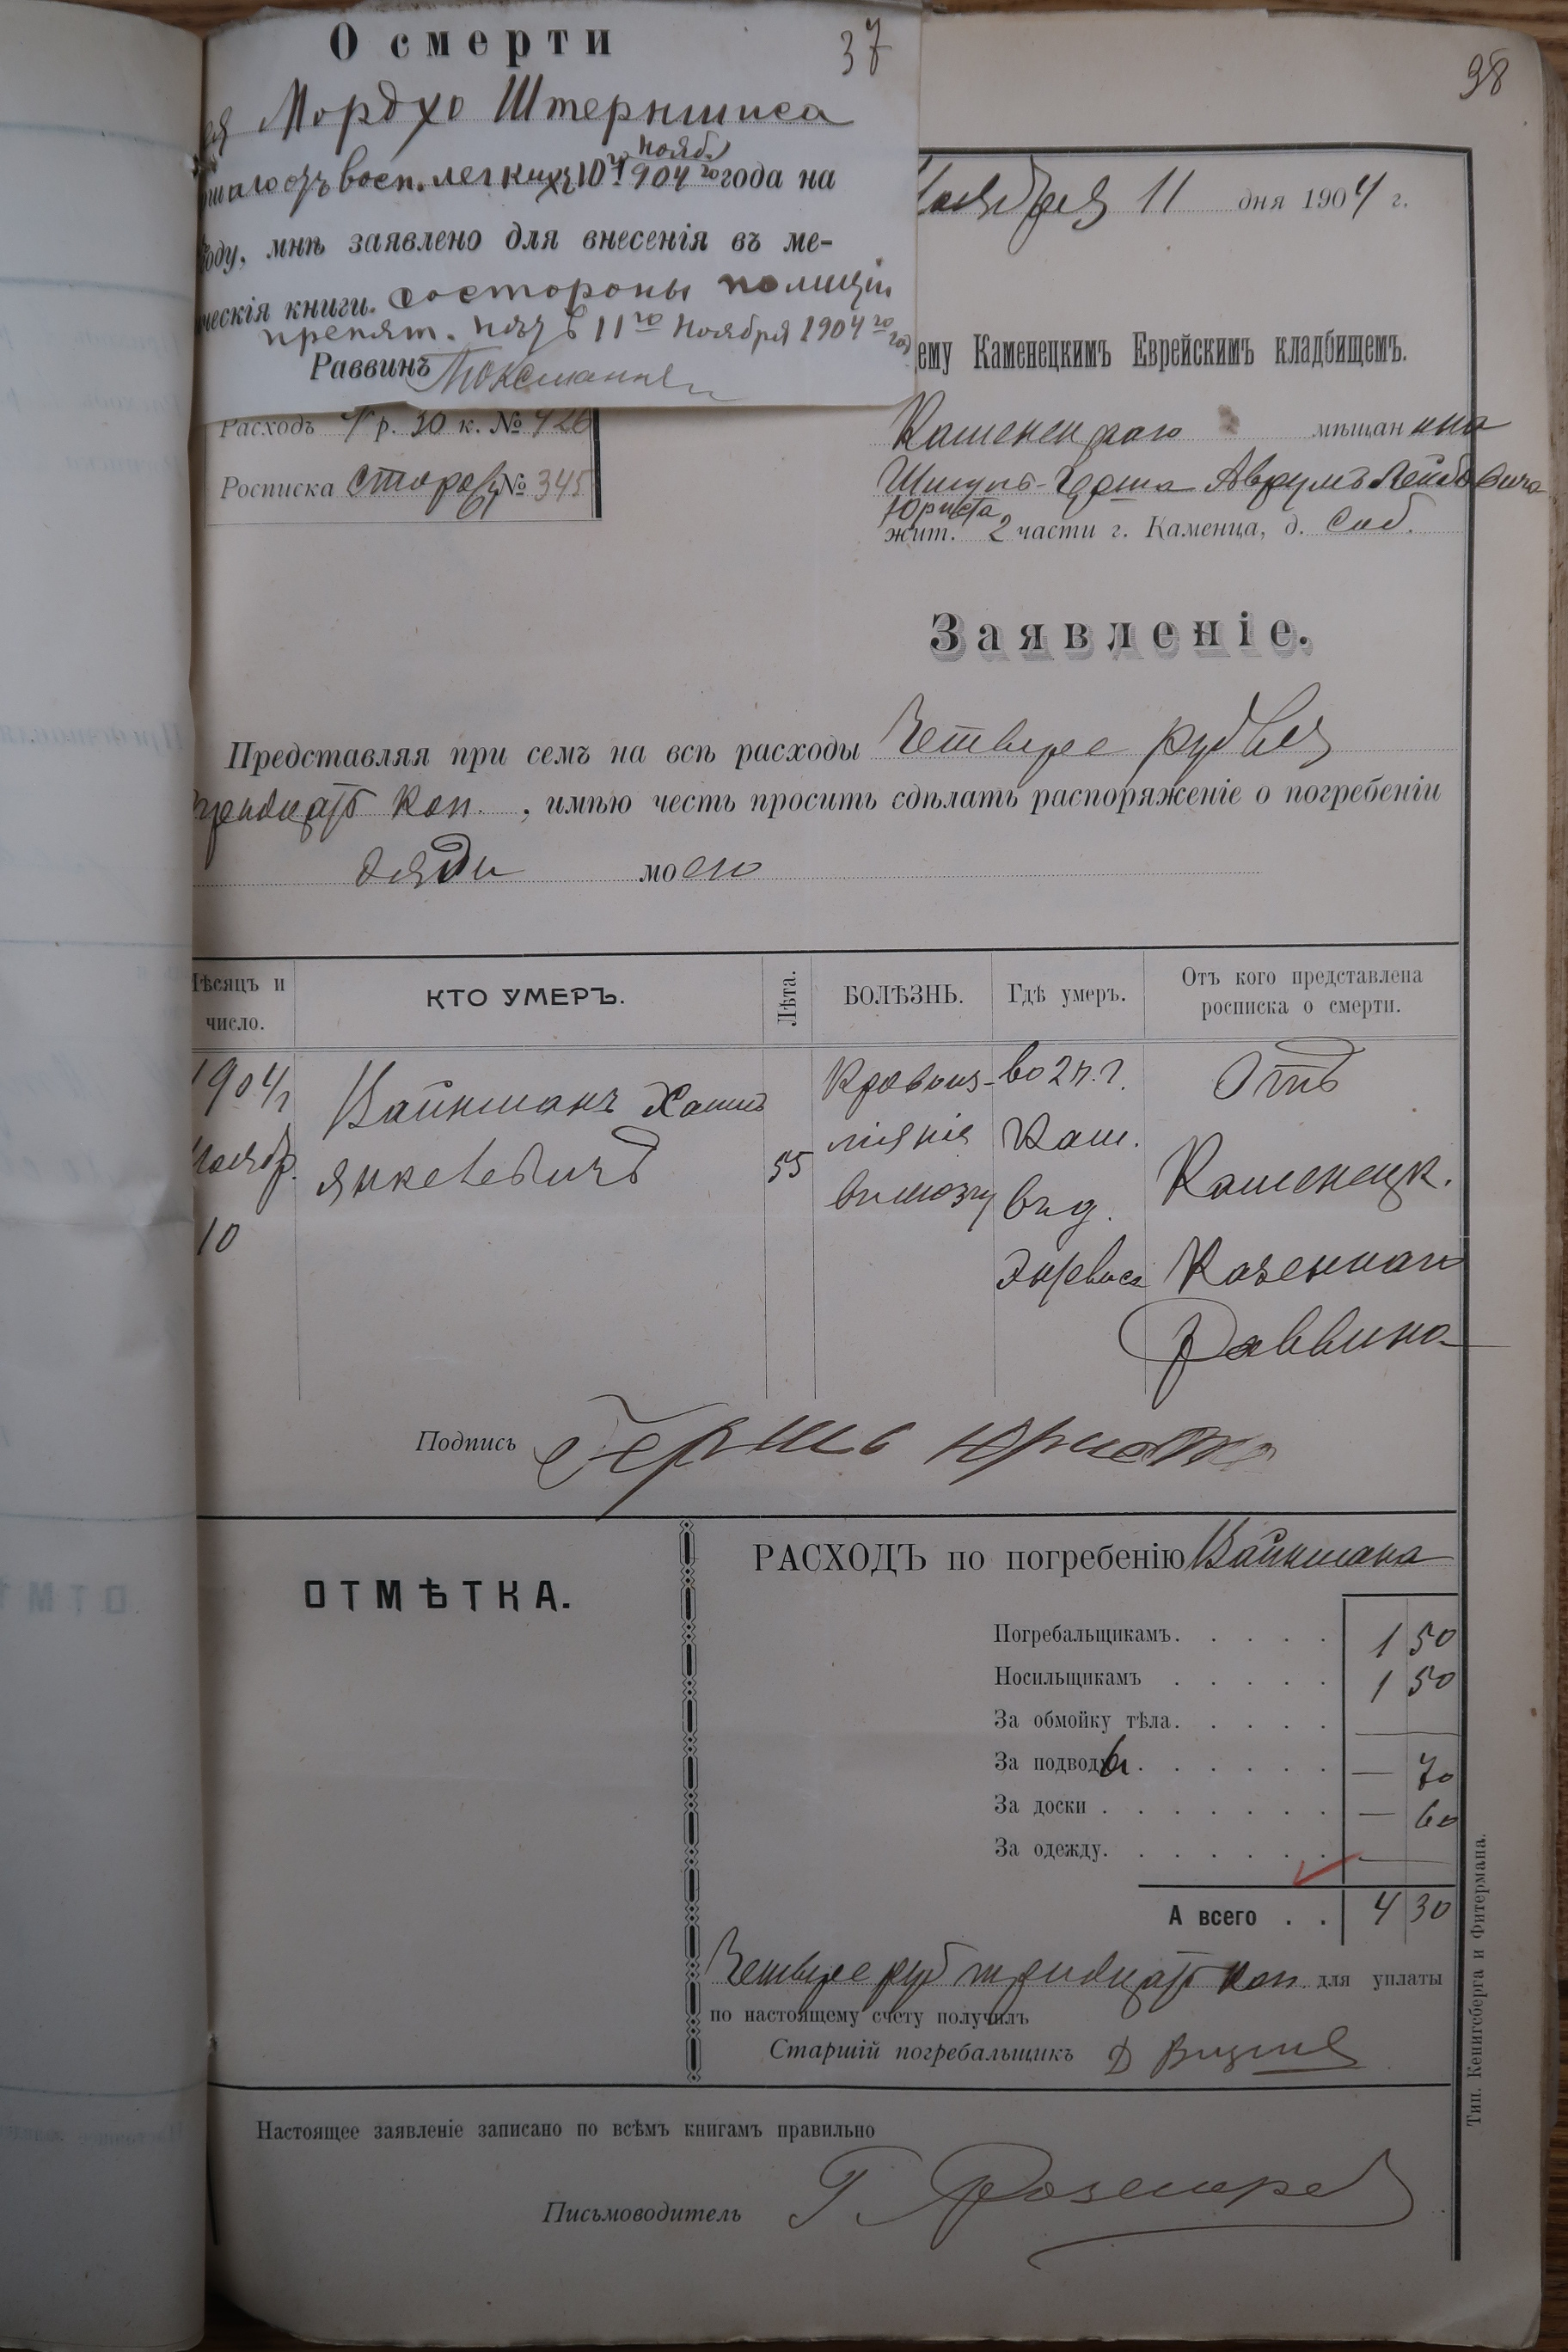 О смерти
37
Мордхо Штерншиса
восп. легкихъ 10го нояб. 1904 го года на
оду, мнѣ заявлено для внесенія въ ме-
ческія книги. Состороны полиціи
препят. нѣтъ 11го Ноября 1904 го год
Раввинъ
98
Ноября 11 дня 1904 г.
ему Каменецкимъ Еврейскимъ кладбищемъ.
Расходъ 4 р. 30 к. № 426
Росписка № 345
Каменецкаго мѣщанина
Шмуль-Герша Аврумъ Лейбовича
Юриста
жит. 2 части г. Каменца, д. Соб.
Заявленіе.
Представляя при семъ на всѣ расходы Четыре рубля
тридцать коп., имѣю честь просить сдѣлать распоряженіе о погребеніи
дяди моего
Мѣсяцъ и число.
КТО УМЕРЪ.
Лѣта.
БОЛѢЗНЬ.
Гдѣ умеръ.
Отъ кого представлена росписка о смерти.
1904/г Ноябр. 10
Вайнманъ Хаимъ
Янкелевичъ
55
Кровоиз-
ліяніе
въ мозгу
во 2 ч. г.
Кам.
въ д.
Отъ
Каменецк.
Казеннаго
Раввина
Подпись Гершъ Юриста
ОТМѢТКА.
РАСХОДЪ по погребенію Вайнмана
Погребальщикамъ. 1 50
Носильщикамъ 1 50
За обмойку тѣла. —
За подводы. — 70
За доски. — 60
За одежду. —
А всего . . 4 30
Четыре руб тридцать коп. для уплаты
по настоящему счету получилъ
Старшій погребальщикъ Д
Настоящее заявленіе записано по всѣмъ книгамъ правильно
Письмоводитель Г.
Тип. Кенигсберга и Фитермана.